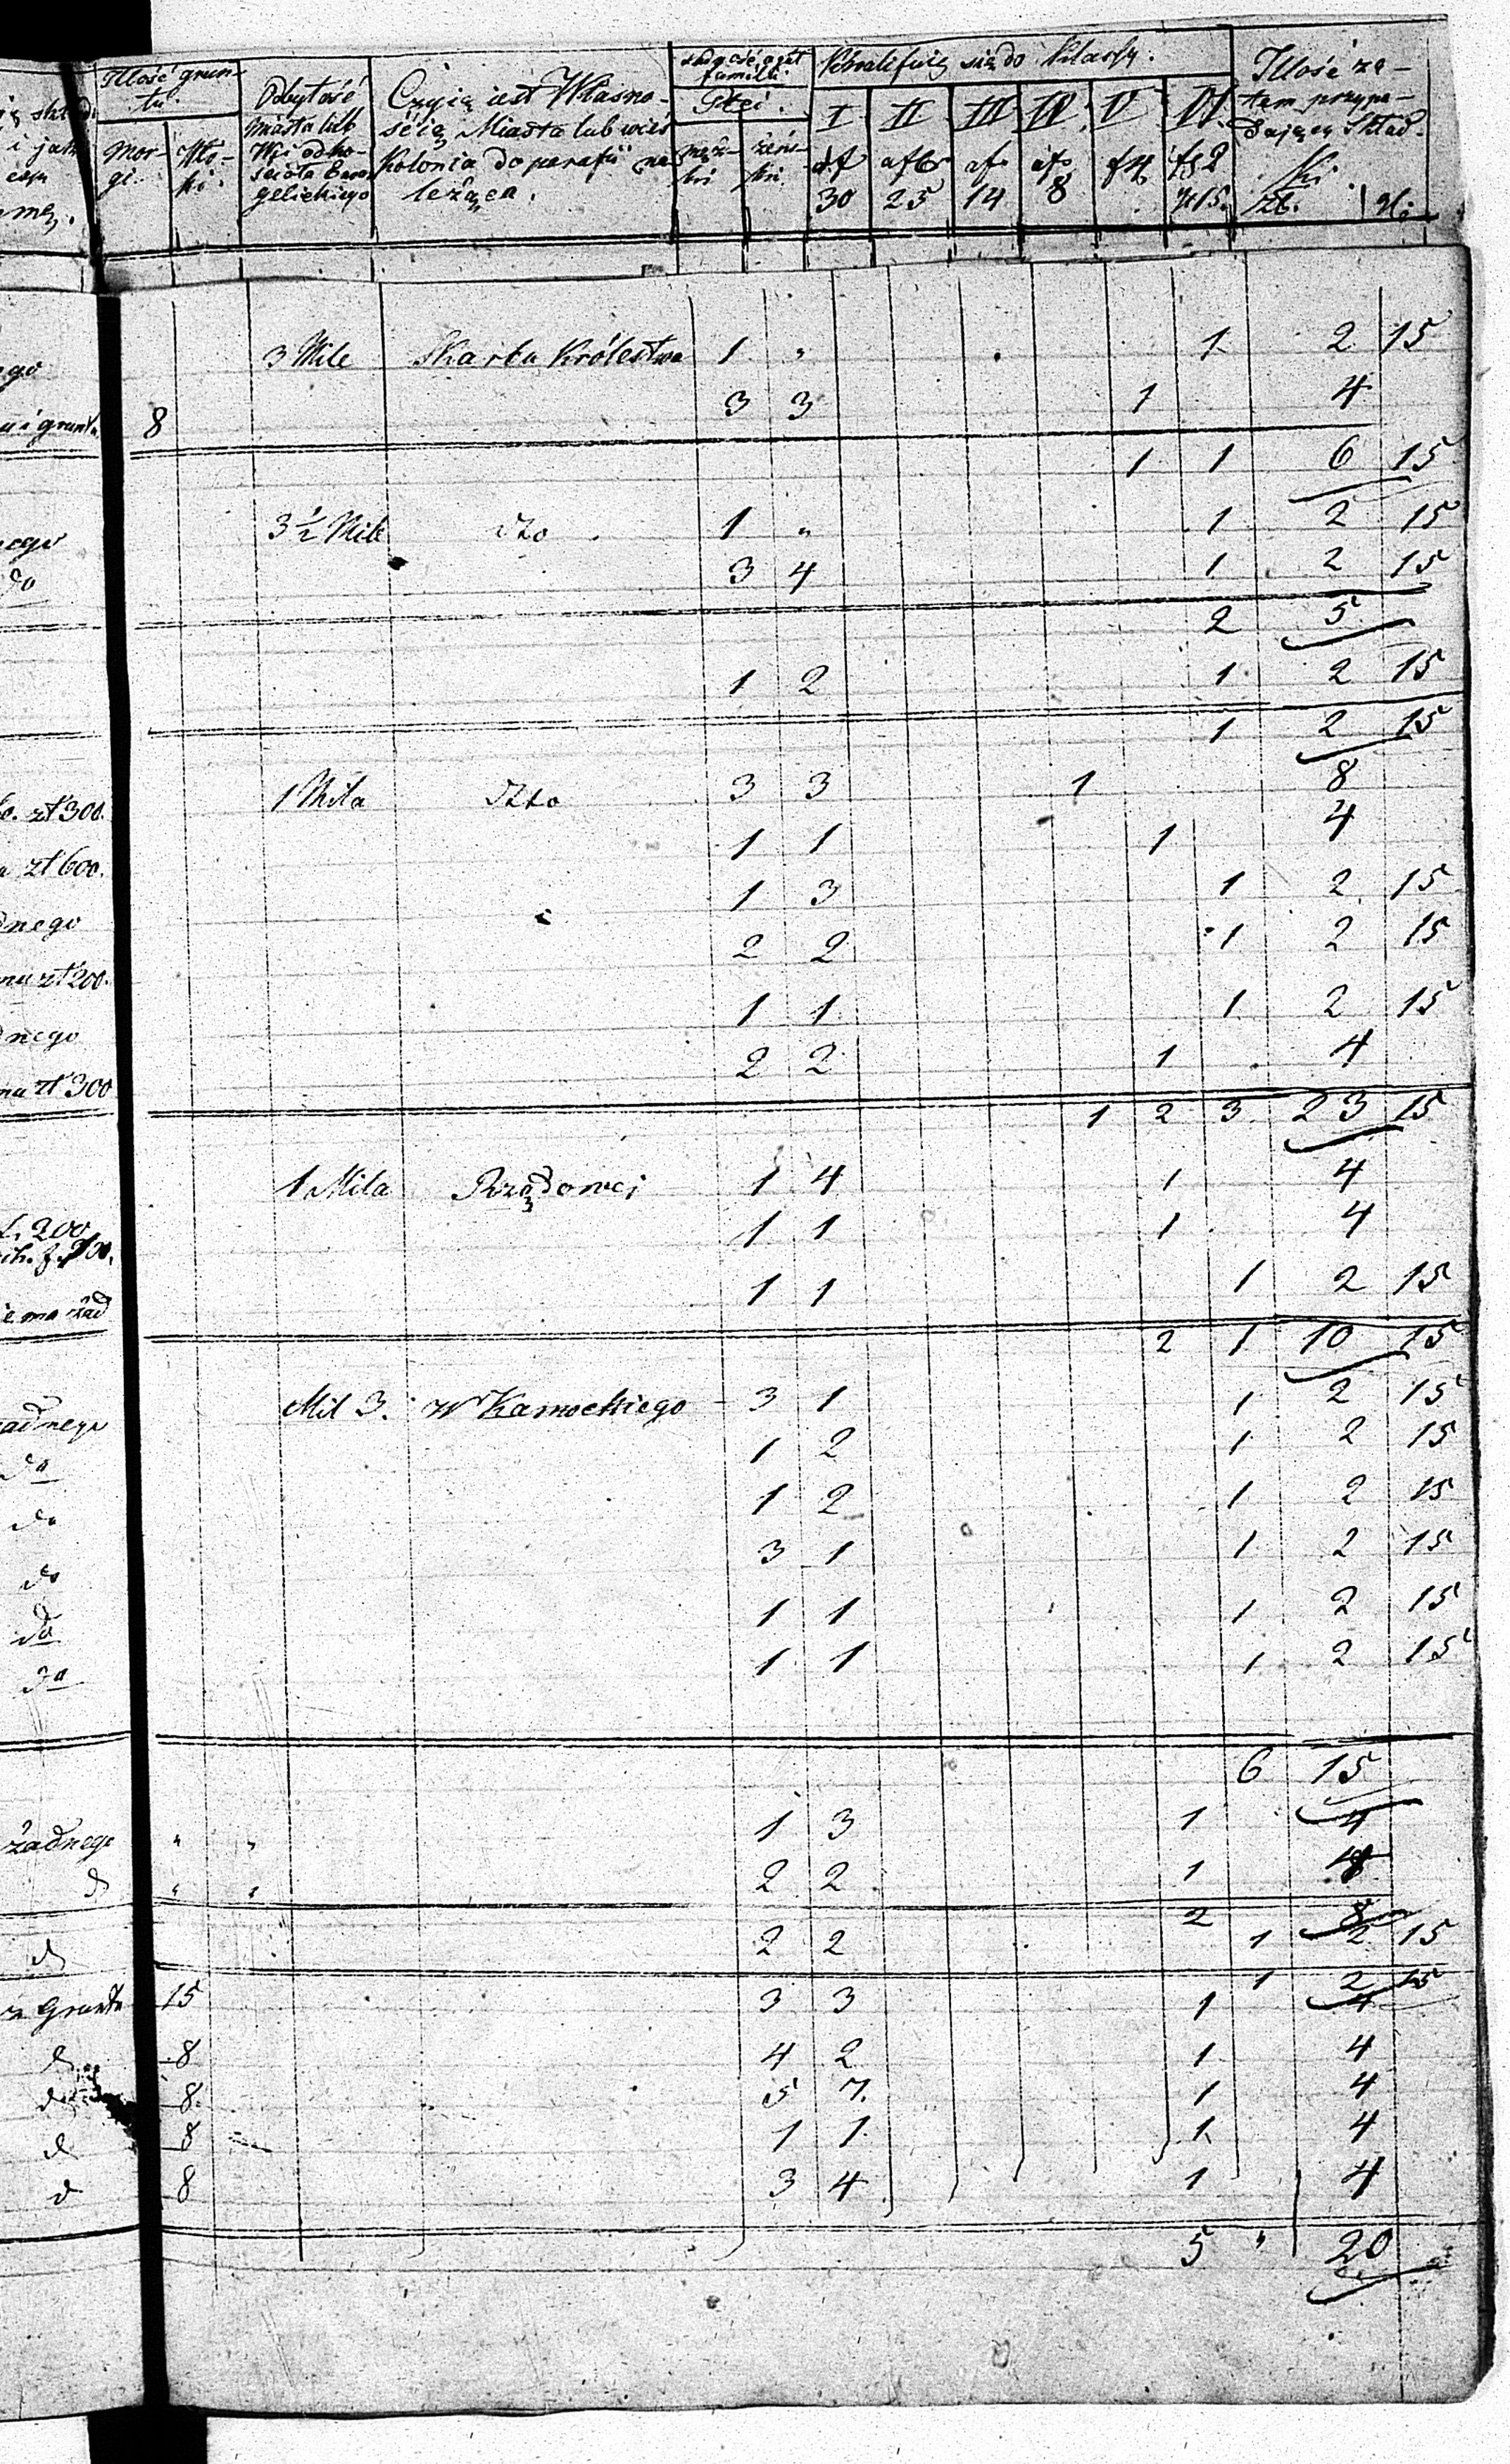 Illość grun-
tu.
Mor-
gi.
Odbytość
Miasta lub
Wsi od ko-
ścioła Ewan
gelickiego
Czyią iest Własno-
ścią Miasto lub wieś
Kolonia do parafii na
leżąca.
familii.
Płci.
męz-
ki
żeńs-
ki.
Kwalifuią się do Klassy.
I
30
II
25
III
14
IV
8
V
f 4
VI
f 2
gr 15.
Illość za-
tem przypa-
dającey Skład-
ki.
zł. gr.
3 Mile Skarbu Królestwa 1 " 1 2 15
u i gruntu 8 3 3 1 4
1 1 6 15
3 1/2 Mile dto 1 " 1 2 15
do 3 4 1 2 15
2 5
1 2 1 2 15
1 2 15
zł 300. 1 Mila dto 3 3 1 8
zł 600. 1 1 1 4
dnego 1 3 1 2 15
mu zł 200. 2 2 1 2 15
dnego 1 1 1 2 15
mu zł 300 2 2 1 4
1 2 3 23 15
1 Mila Rządowej 1 4 1 4
200 1 1 1 4
ie ma żad 1 1 1 2 15
2 1 10 15
żadnego Mil 3. W Kamockiego 3 1 1 2 15
do 1 2 1 2 15
do 1 2 1 2 15
do 3 1 1 2 15
do 1 1 1 2 15
do 1 1 1 2 15
6 15
żadnego " " 1 3 1 4
d " " 2 2 1 4
2 8
d 2 2 1 2 15
1 2 15
z Gruntu 15 3 3 1 4
d 8 4 2 1 4
d 8 5 7 1 4
d 8 1 1 1 4
d 8 3 4 1 4
5 " 20